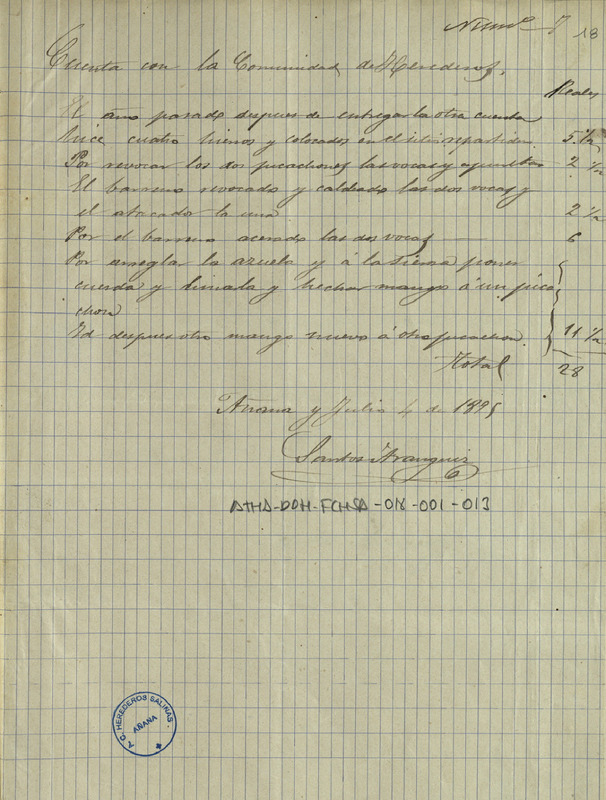 Num.º 7 13
Cuenta con la Comunidad de Herederos.
Reales
El ano pasado despues de entregar la otra cuenta
hice cuatro hierros y colocados en el sitio repartidor 5 1/2
Por revocar los dos picachones las vocas y agundtas 2 1/2
El barreno revocado y caldeado las dos vocas y
el atacador la una 2 1/2
Por el barreno acerado las dos vocas 6
Por arreglar la azuela y á la sierra poner
cuerda y limarla y hechar mango á un pica
chon
Yd despues otro mango nuevo á otro picachon. 11 1/2
Total 28
Añana y Julio 4 de 1895
Santos Aranguiz
ATHA-DOH-FCHSA-018-001-013
T. C. HEREDEROS SALINAS.
AÑANA